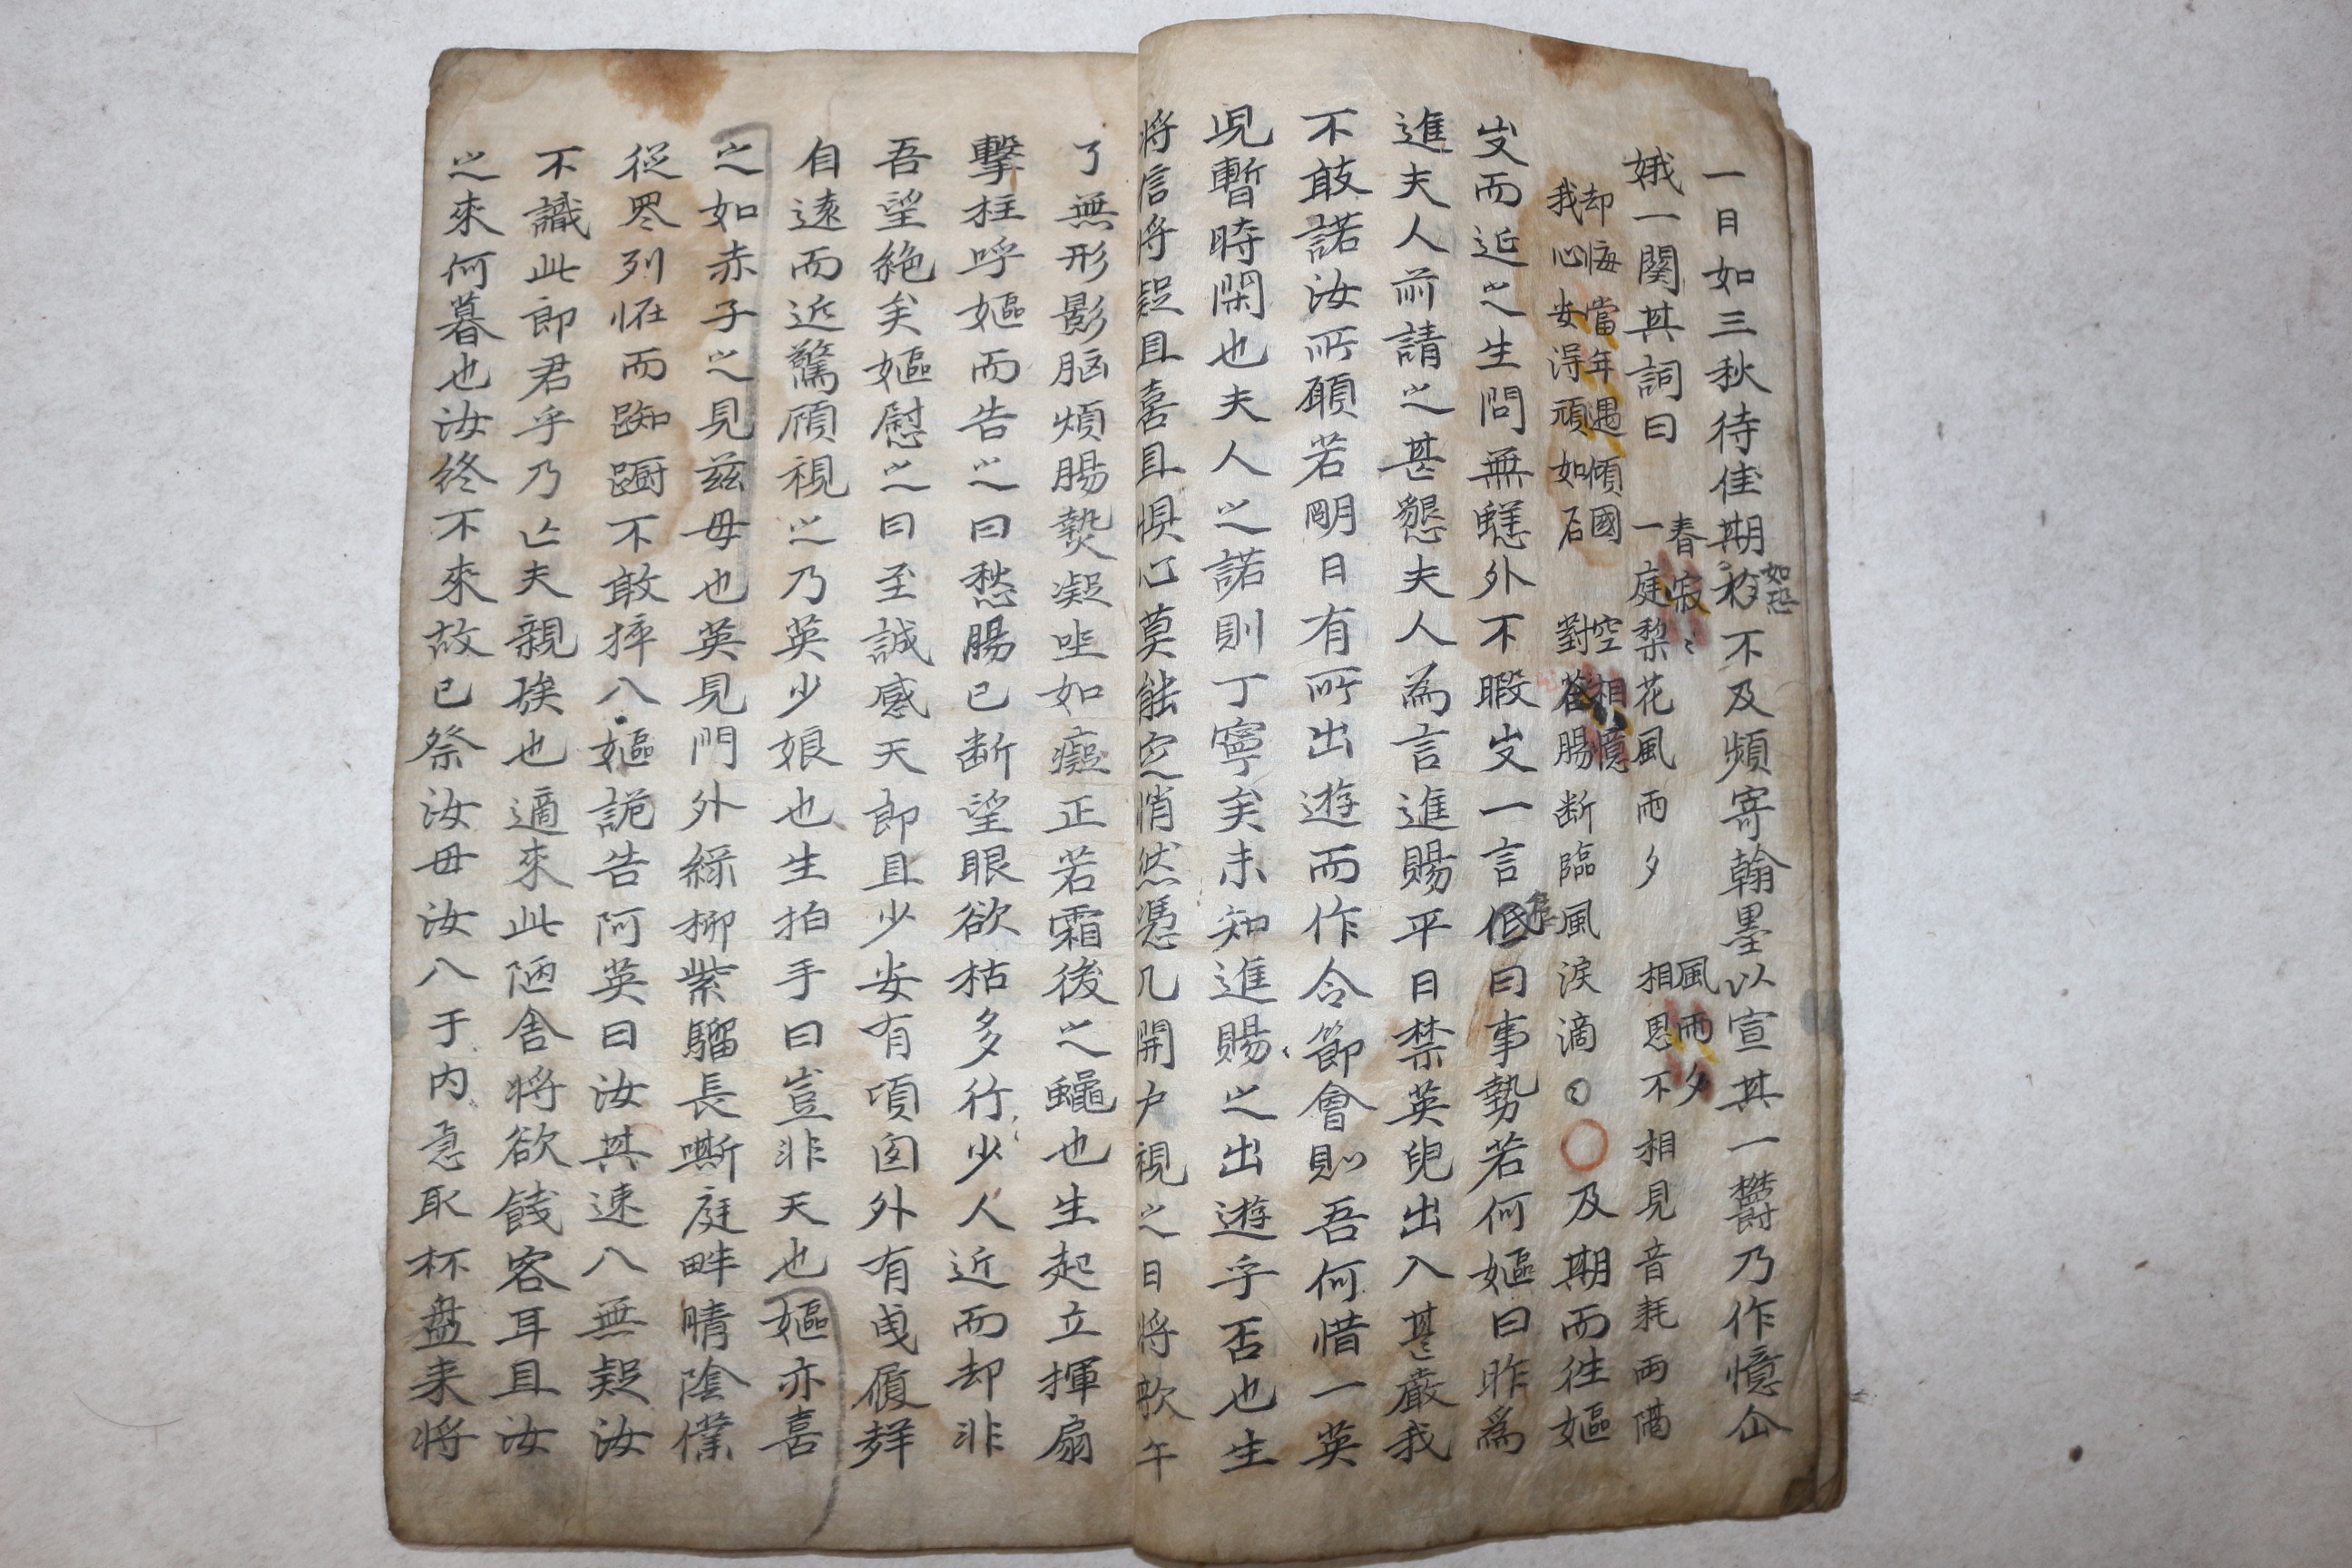 一日如三秋待佳期不及頻寄翰墨以宣其一欝乃作憶仚
如恐
娥一闋其詞曰 春寂〻 一庭梨花風雨夕 風雨夕 相思不相見音耗兩隔
却悔當年遇傾國 我心安得頑如石 空相憶 對 腸断臨風淚滴 〇及期而徃嫗
迎而近之生問無蟻外不暇一言低曰事勢若何嫗曰昨爲
進夫人前請之甚懇夫人為言進賜平日禁英兒出入甚嚴我
不敢諾汝所願若明日有所出遊而作令節會則吾何惜一英
児暫時閑也夫人之諾則丁寧矣未知進賜之出遊乎否也生
將信將疑且喜且惧心莫能定悄然憑几開户視之日將欹午
了無形影脳煩腸熱凝坐如癡正若霜後之蠅也生起立揮扇
擊柱呼嫗而告之曰愁腸已断望眼欲枯多行少人近而却非
吾望絶矣嫗慰之曰至誠感天郎且少安有頃囱外有曳履聲
自遠而近驚頋視之乃英少娘也生拍手曰豈非天也嫗亦喜
之如赤子之見兹母也英見門外綠柳紫騮長嘶庭畔晴陰僕
從罗列恠而踟蹰不敢捽入嫗詭告阿英曰汝其速入無疑汝
不識此郎君乎乃亡夫親族也適來此陋舍將欲餞客耳且汝
之來何暮也汝終不來故已祭汝母汝入于内急取杯盘来將